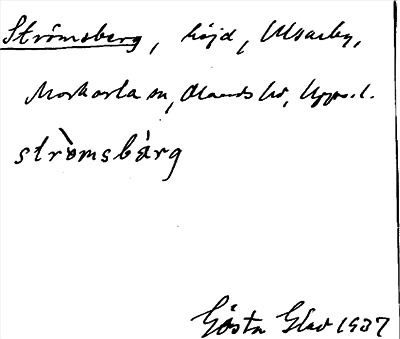 Strömsberg, höjd, Ulvsarby,
Morkarla sn, Olands hd, Upps. l.
strömsbärg
Gösta Glav 1937